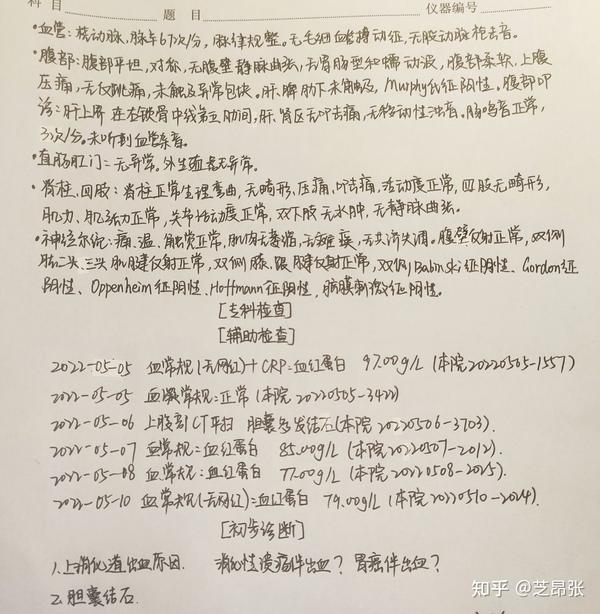 科 目
题 目
仪器编号
·血管:桡动脉,脉率67次/分,脉律规整。无毛细血管搏动征,无股动脉枪击音。
·腹部:腹部平坦,对称,无腹壁静脉曲张,无胃肠型和蠕动波,腹部柔软,上腹
压痛,无反跳痛,未触及异常包块。肝、脾肋下未触及,Murphy氏征阴性。腹部叩
诊:肝上界在右锁骨中线第五肋间,肝、肾区无叩击痛,无移动性浊音。肠鸣音正常,
3次/分。未听到血管杂音。
·直肠肛门:无异常。外生殖器无异常。
·脊柱、四肢:脊柱正常生理弯曲,无畸形、压痛、叩击痛,活动度正常,四肢无畸形,
肌力、肌张力正常,关节活动度正常,双下肢无水肿,无静脉曲张。
·神经系统:痛、温、触觉正常,肌肉无萎缩,无瘫痪,无共济失调。腹壁反射正常,双侧
肱二头、三头肌腱反射正常,双侧膝、跟腱反射正常,双侧Babinski征阴性、Gordon征
阴性、Oppenheim征阴性、Hoffmann征阴性,脑膜刺激征阴性。
[专科检查]
[辅助检查]
2022-05-05 血常规(无网红)+CRP:血红蛋白 97.00g/L (本院20220505-1557)
2022-05-05 血凝常规:正常(本院20220505-3422)
2022-05-06 上腹部CT平扫 胆囊多发结石(本院20220506-3703).
2022-05-07 血常规:血红蛋白 85.00g/L (本院20220507-2012).
2022-05-08 血常规:血红蛋白 77.00g/L (本院20220508-2025).
2022-05-10 血常规(无网红):血红蛋白 79.00g/L (本院20220510-2024).
[初步诊断]
1.上消化道出血原因. 消化性溃疡伴出血?胃癌伴出血?
2.胆囊结石.
知乎 @芝昂张